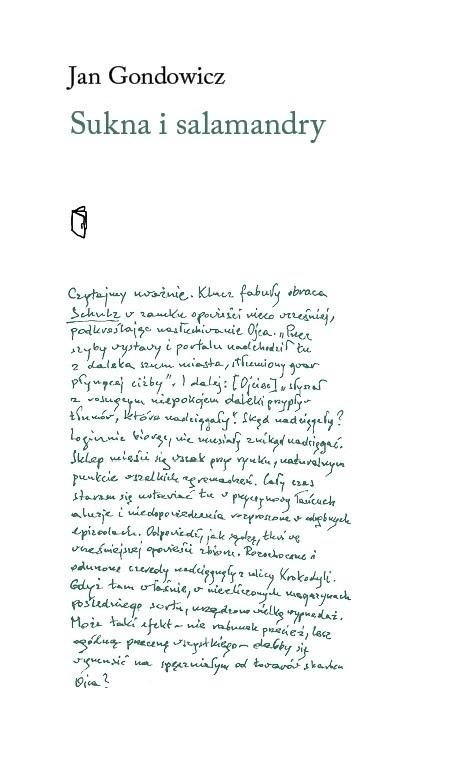 Jan Gondowicz
Sukna i salamandry
Czytajmy uważnie. Klucz fabuły obraca
Schulz w zamku opowieści nieco wcześniej,
podkreślając nasłuchiwanie Ojca. „Przez
szyby wystawy i portalu nadchodził tu
z daleka szum miasta, stłumiony gwar
płynącej ciżby”. I dalej: [Ojciec] „słyszał
z rosnącym niepokojem daleki przypływ
tłumów, które nadciągały”. Skąd nadciągały?
Logicznie biorąc, nie musiały znikąd nadciągać.
Sklep mieści się wszak przy rynku, naturalnym
punkcie wszelkich zgromadzeń. Cały czas
staram się odtwarzać tu przyczynowy łańcuch
aluzje i niedopowiedzenia rozproszone w odrębnych
epizodach. Odpowiedź, jak sądzę, tkwi we
wcześniejszej opowieści zbioru. Rozochocone i
odurzone czeredy nadciągnęły z ulicy Krokodyli.
Gdyż tam właśnie, w niezliczonych magazynach
pośledniego sortu, urządzono wielką wyprzedaż.
Może taki efekt – nie rabunek przecież, lecz
ogólną przecenę wszystkiego – dałoby się
wymusić na spęczniałym od towarów skarbcu
Ojca?